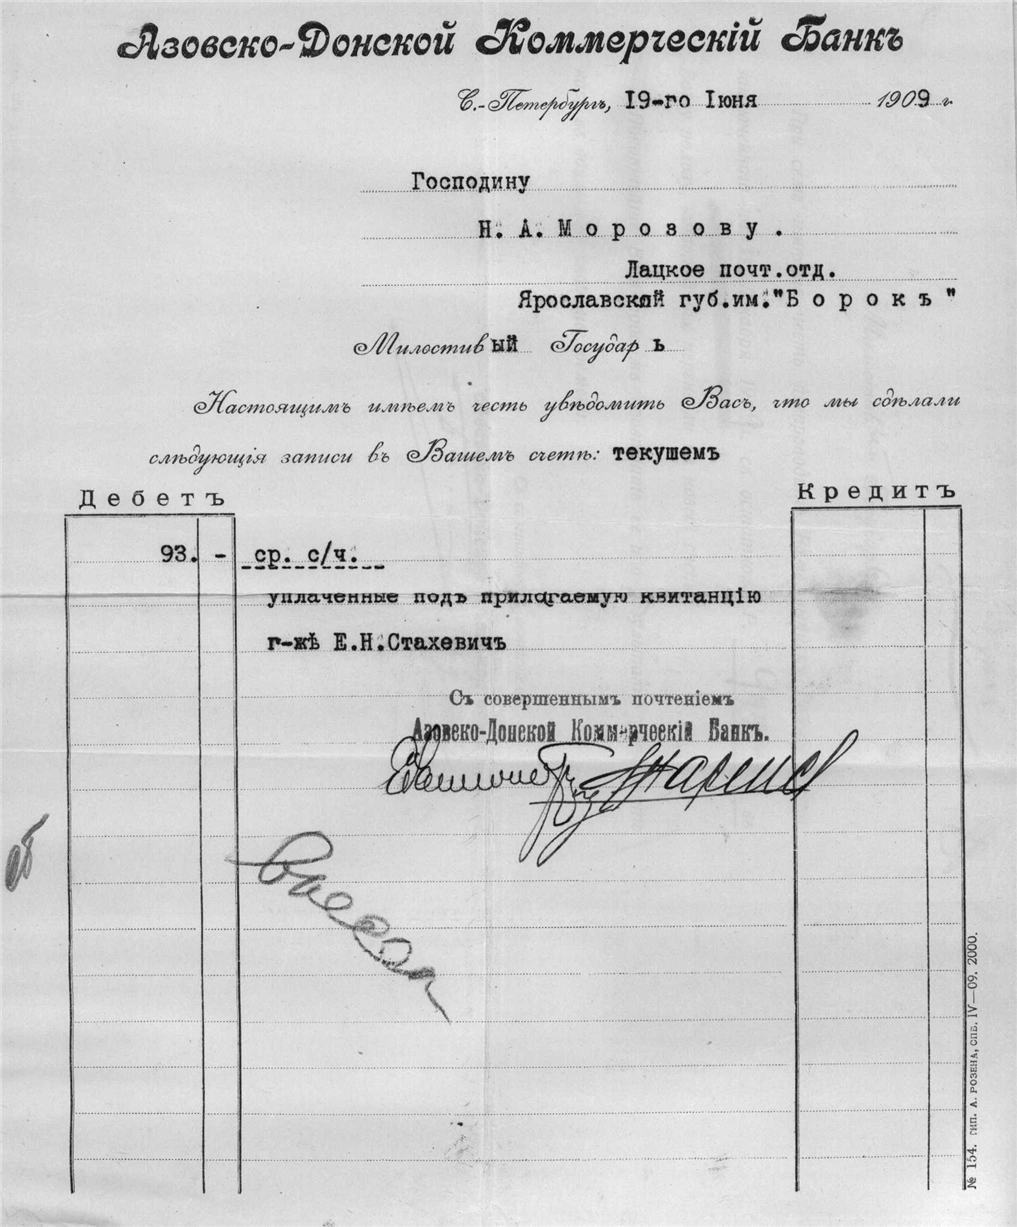 Азовско-Донской Коммерческій Банкъ
С.-Петербургъ, 19-го Iюня 1909 г.
Господину
Н. А. Морозову.
Лацкое почт.отд.
Ярославской губ.им."Борокъ"
Милостивый Государь
Настоящимъ имѣемъ честь увѣдомить Васъ, что мы сдѣлали
слѣдующія записи въ Вашемъ счетѣ: текушемъ
Дебетъ Кредитъ
93. - ср. с/ч.
уплаченные подъ прилогаемую квитанцію
г-жѣ Е.Н.Стахевичъ
Съ совершеннымъ почтеніемъ
Азовско-Донской Коммерческій Банкъ.
№ 154. тип. А. РОЗЕНА, СПБ. IV—09. 2000.